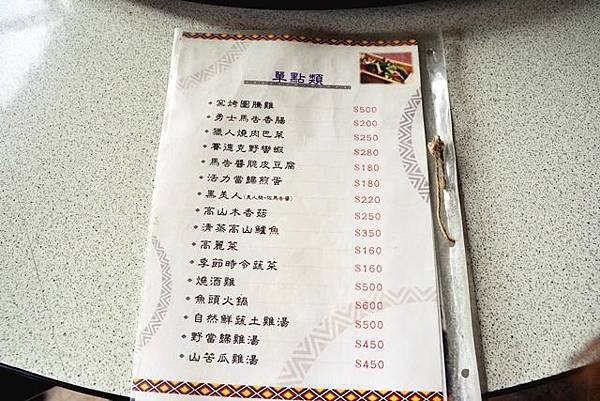 單點類
窯烤圖騰雞 $500
勇士馬告香腸 $200
獵人燒肉巴菜 $250
賽德克野蠻蝦 $280
馬告醬脆皮豆腐 $180
活力當歸煎蛋 $180
黑美人(美人腿+佐馬告醬) $220
高山木香菇 $250
清蒸高山鱸魚 $350
高麗菜 $160
季節時令蔬菜 $160
燒酒雞 $500
魚頭火鍋 $600
自然鮮蔬土雞湯 $500
野當歸雞湯 $450
山苦瓜雞湯 $450